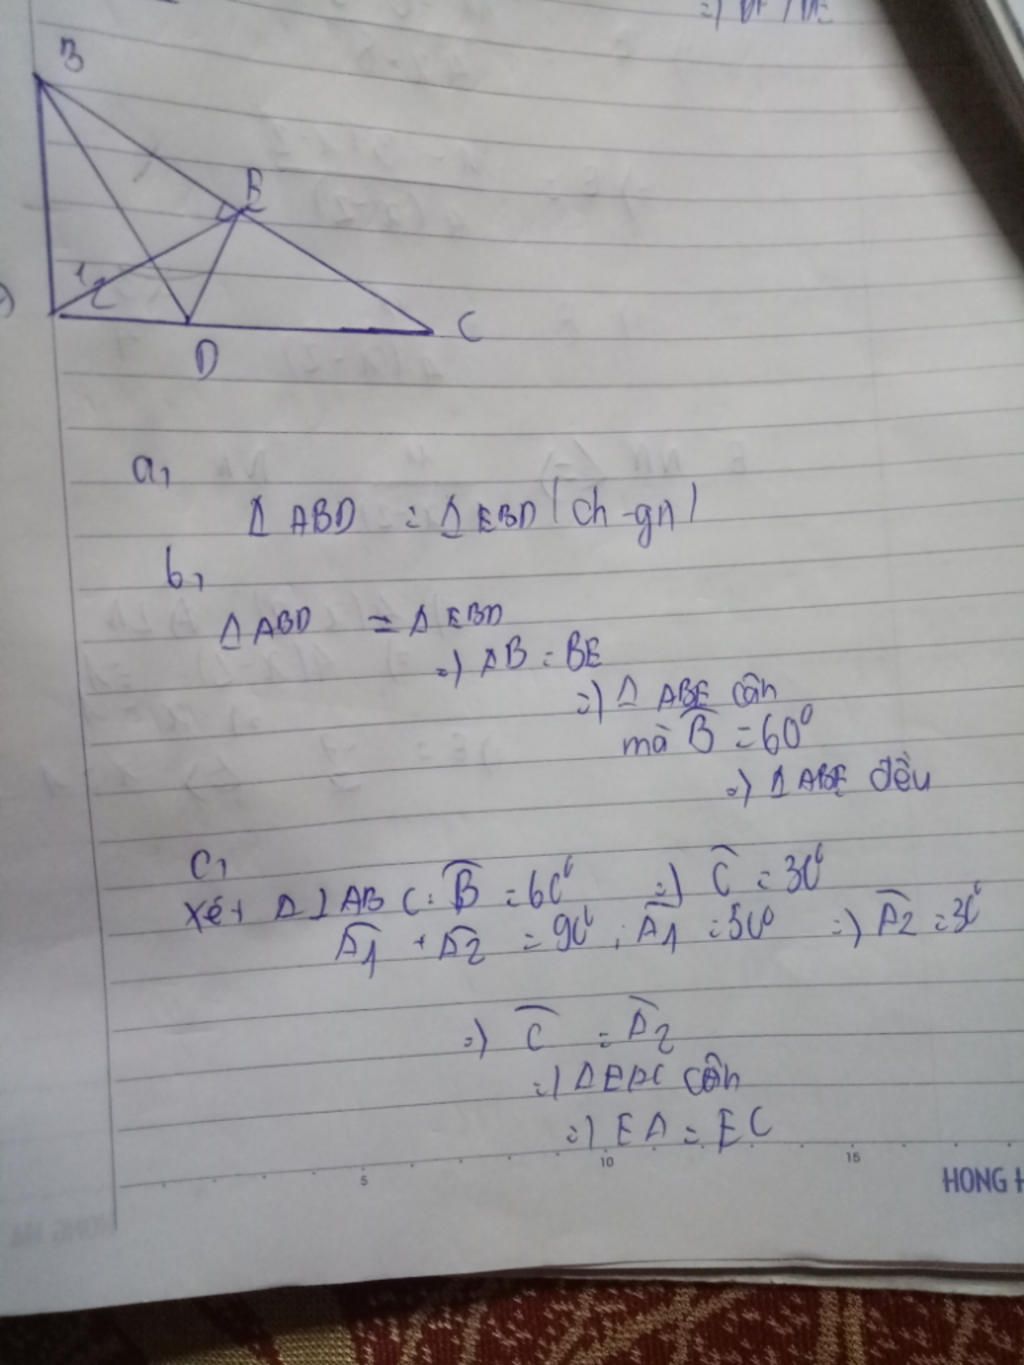 B
E
1 2
D
C
a,
Δ ABD = Δ EBD (ch-gn)
b,
Δ ABD = Δ EBD
=) AB = BE
=) Δ ABE cân
mà B̂ = 60⁰
=) Δ ABE đều
c,
xét Δ ABC: B̂ = 60⁰ =) Ĉ = 30⁰
Â1 + Â2 = 90⁰, Â1 = 50⁰ =) Â2 = 30⁰
=) Ĉ = Â2
=) Δ EAC cân
=) EA = EC
5 10 15
HONG H